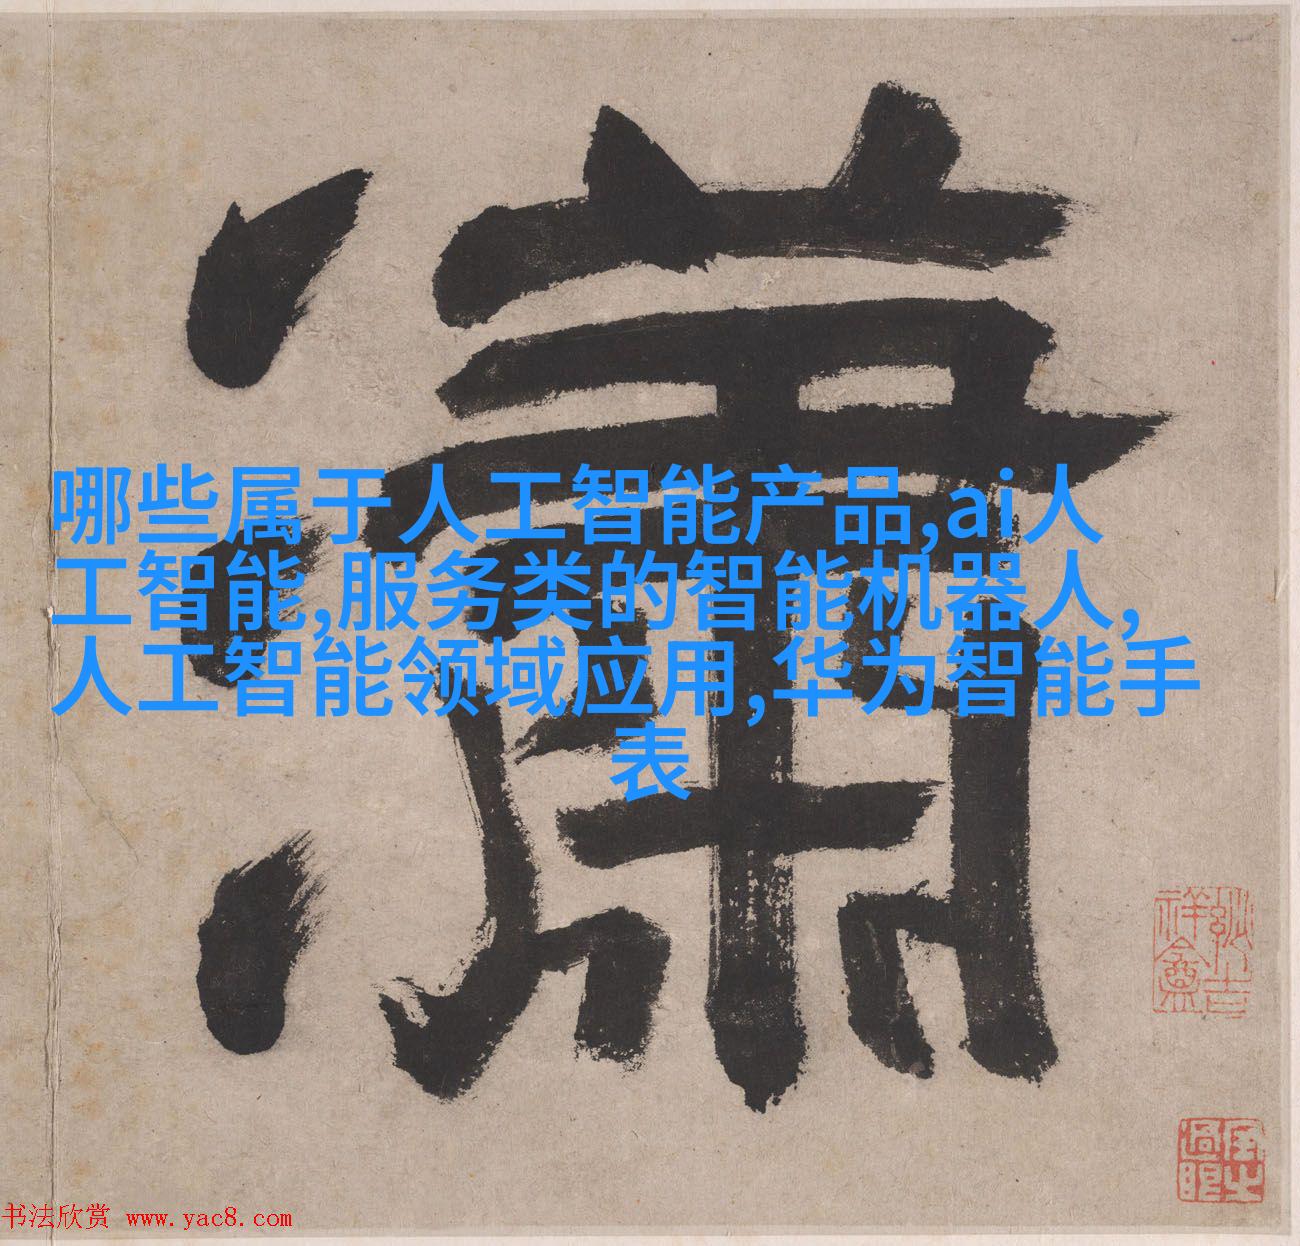 瀟
哪些属于人工智能产品,ai人
工智能,服务类的智能机器人,
人工智能领域应用,华为智能手
表
书法欣赏 www.yac8.com